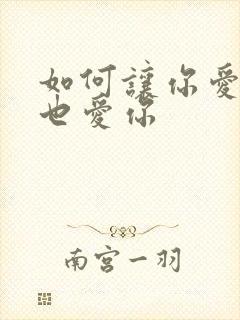 如何讓你愛
也愛你
南宮一羽